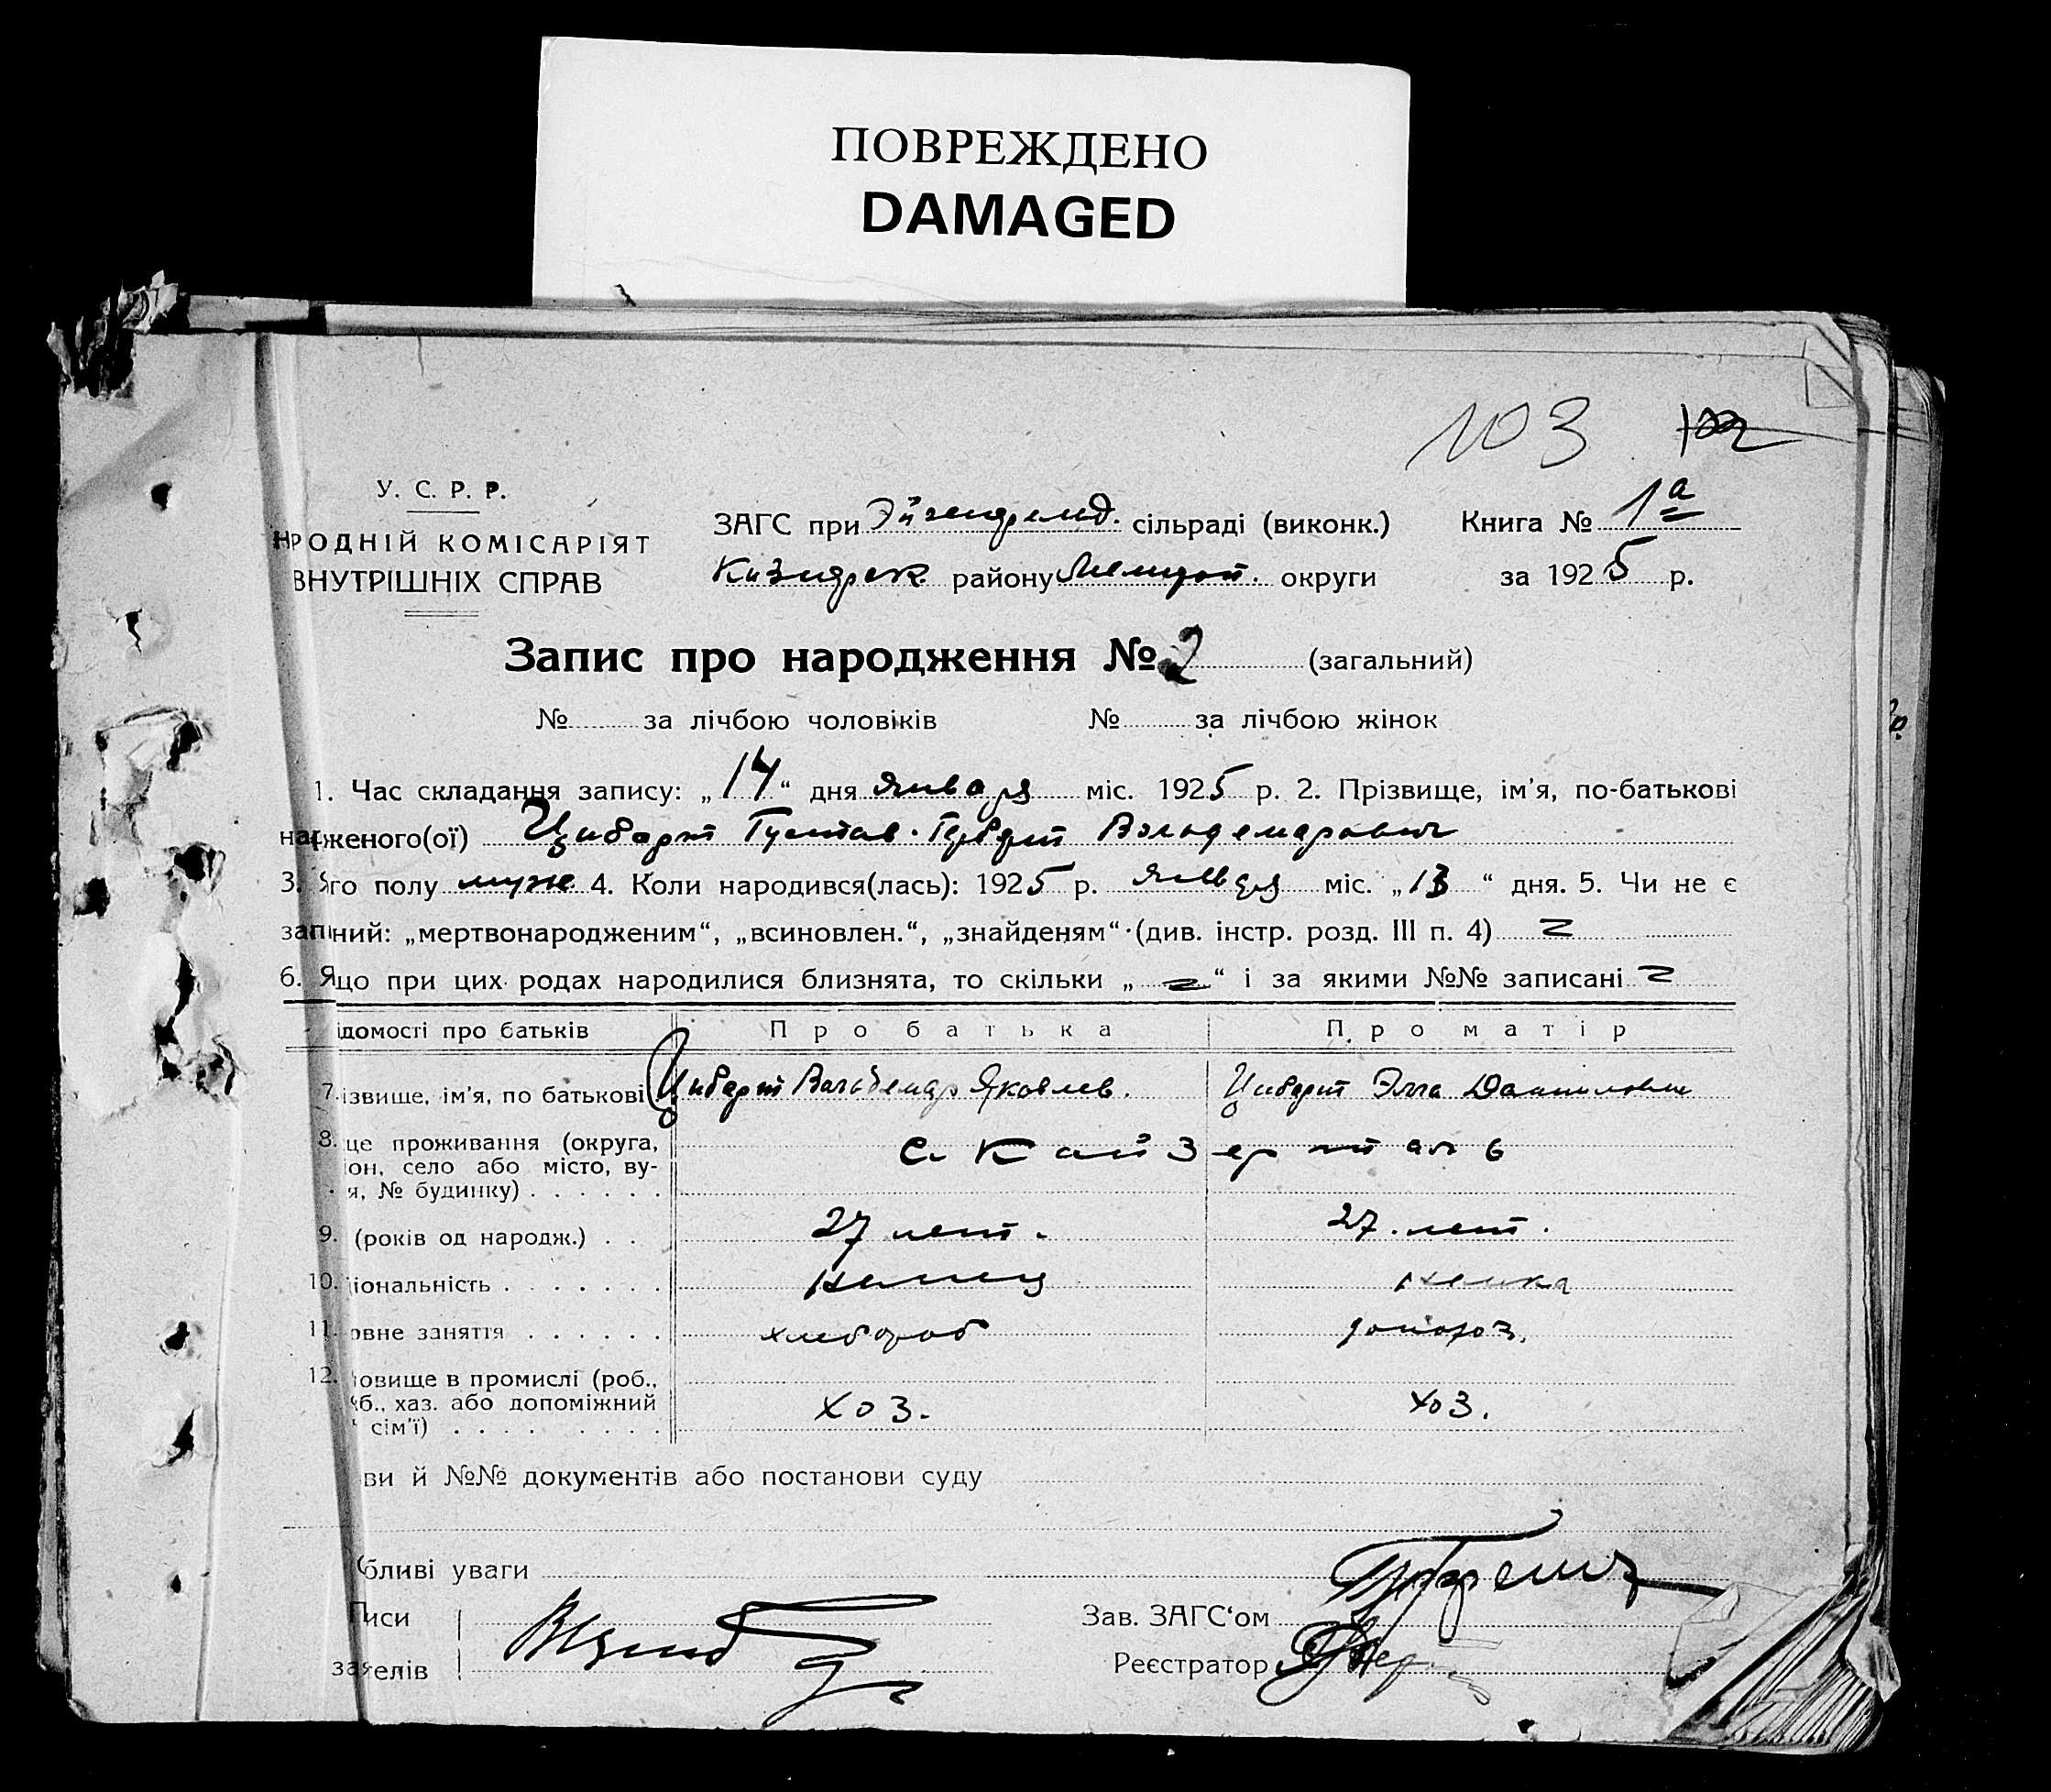 ПОВРЕЖДЕНО
DAMAGED
103 102
У. С. Р. Р.
НРОДНІЙ КОМІСАРІЯТ
ВНУТРІШНІХ СПРАВ
ЗАГС при Эйгенфельд. сільраді (виконк.) Книга № 1а
Кизиярск району Мелитоп. округи за 1925 р.
Запис про народження № 2 (загальний)
№ за лічбою чоловіків № за лічбою жінок
1. Час складання запису: „14“ дня января міс. 1925 р. 2. Прізвище, ім'я, по-батькові
на женого(ої) Цибарт Густав-Герберт Вольдемарович
3. його полу муж 4. Коли народився(лась): 1925 р. января міс. „13“ дня. 5. Чи не є
запний: „мертвонародженим“, „всиновлен.“, „знайденям“ (див. інстр. розд. III п. 4)
6. Яцо при цих родах народилися близнята, то скільки „ “ і за якими №№ записані
ідомості про батьків Про батька Про матір
7. ізвище, ім'я, по батькові Цибарт Вольдемар Яковлев. Цибарт Элла Даниловна
8. це проживання (округа, с. Кайзерталь
он, село або місто, ву-
я, № будинку)
9. (років од народж.) 27 лет. 27. лет.
10. іональність немец немка
11. овне заняття хлебороб домохоз.
12. овище в промислі (роб.,
б., хаз. або допоміжний хоз. хоз.
сім'ї)
ви й №№ документів або постанови суду
бливі уваги
Писи Зав. ЗАГС'ом
заятелів Реєстратор